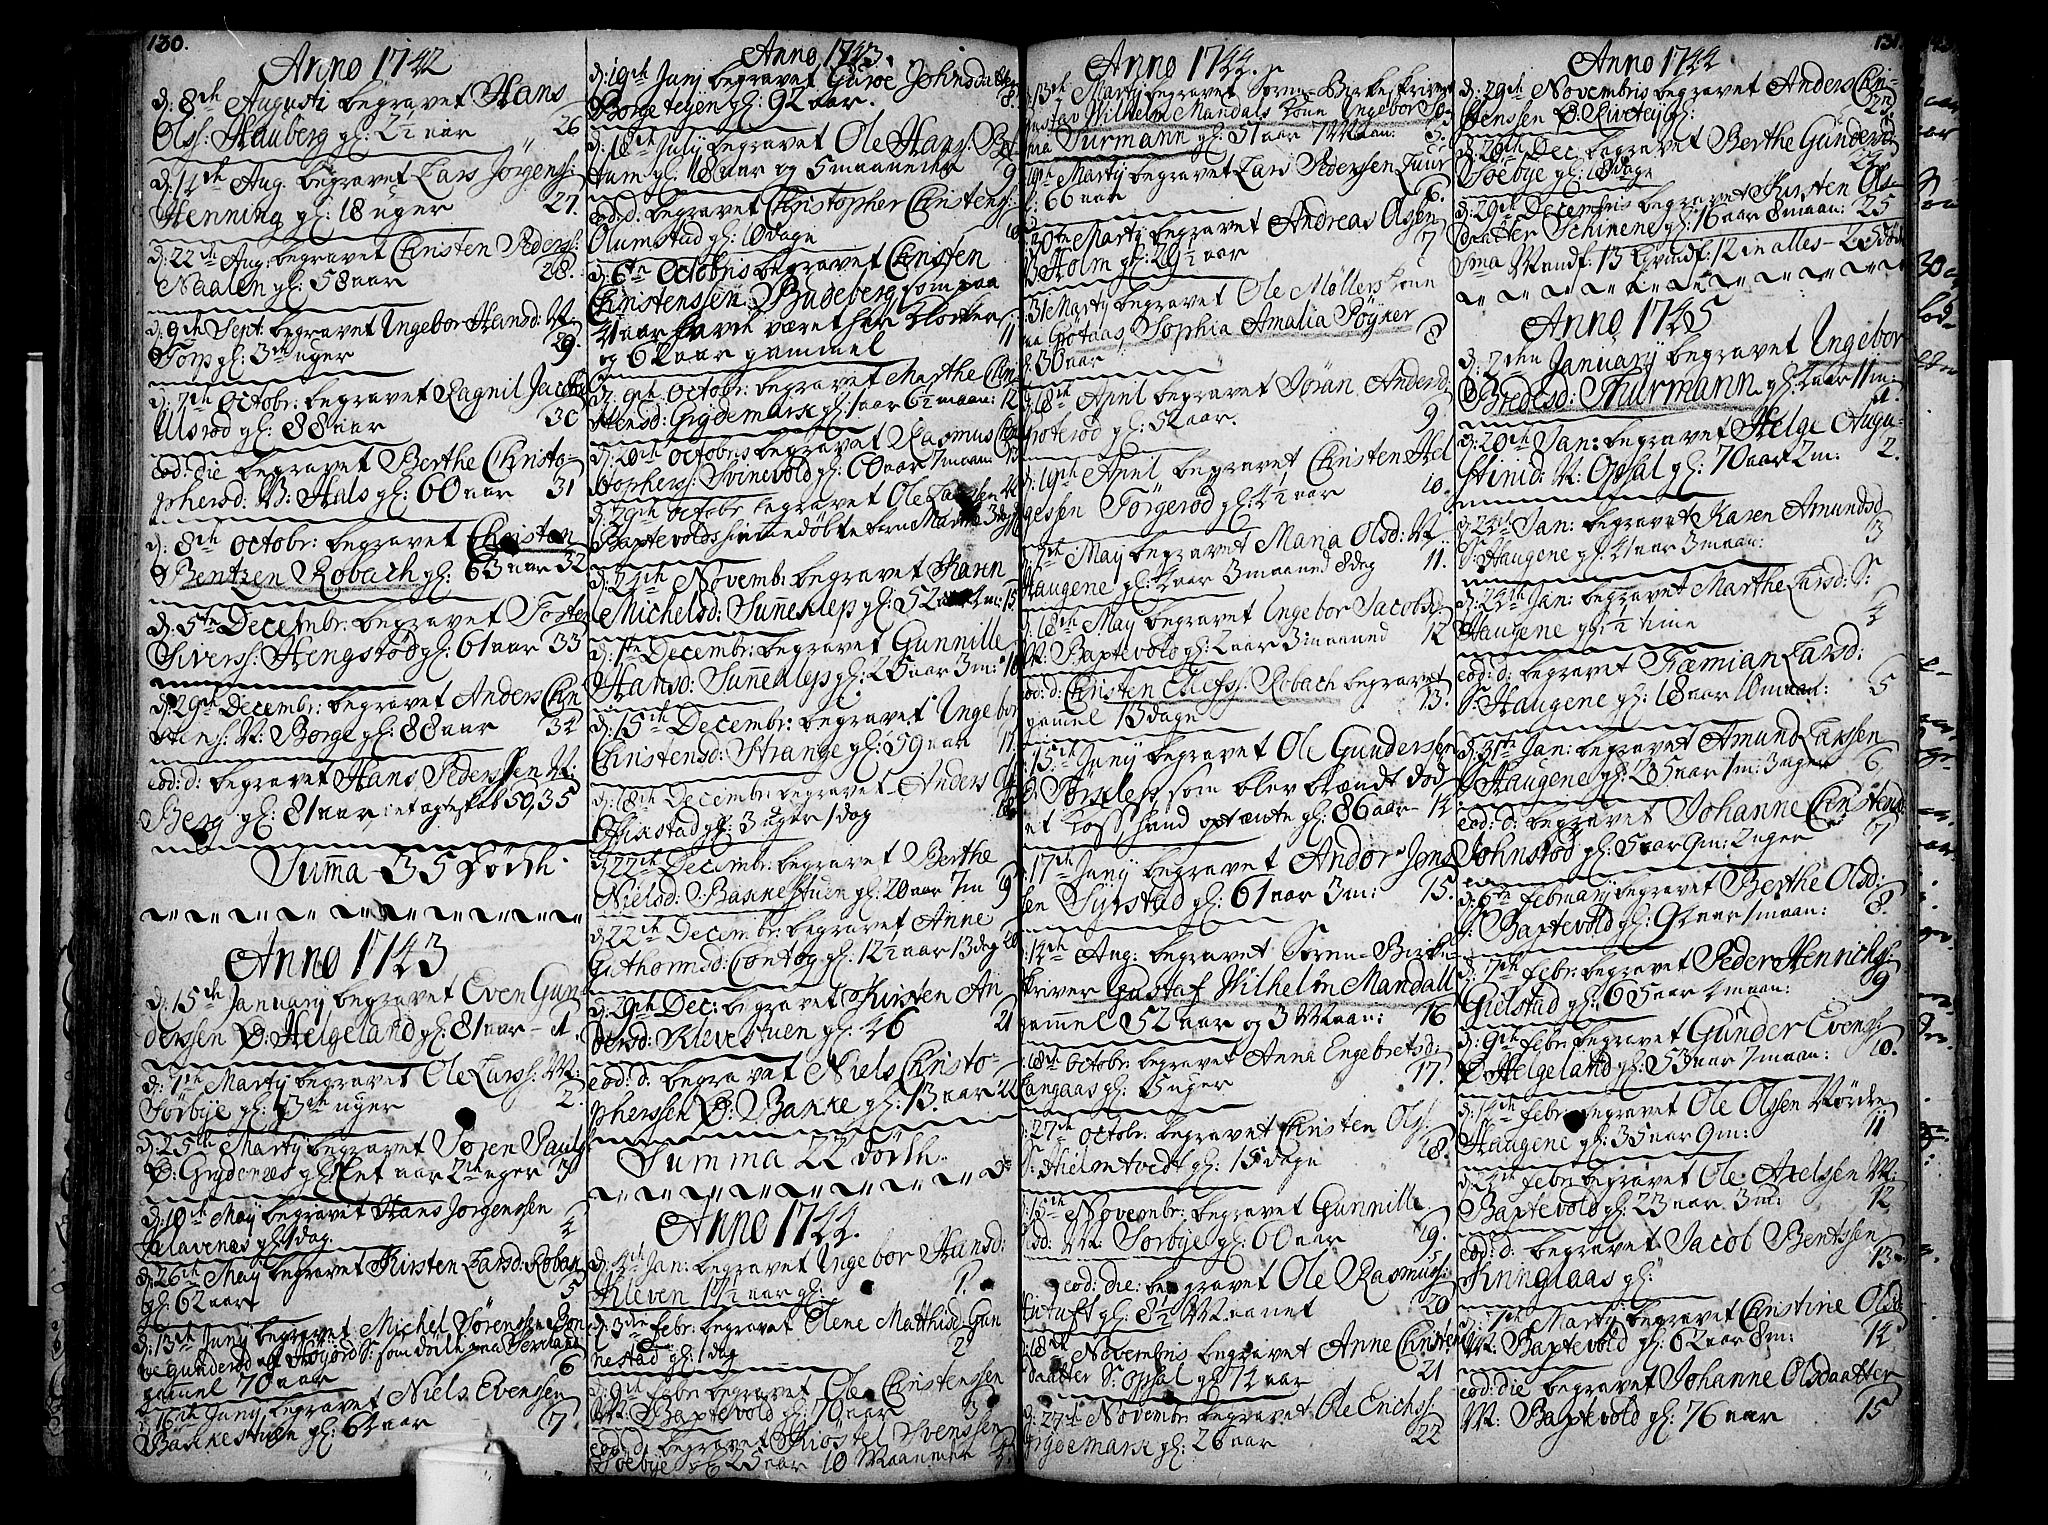 130.
Anno 1742
d: 8de Augusti begravet Hans
Olss: Hauberg gl: 2½ aar 26
d: 14th Aug. begravet Lars Jörgenss:
Henning gl: 18 uger 27.
d: 22th Aug: begravet Christen Pederss:
Naalen gl: 58 aar 28.
d: 9th Sept: begravet Ingebor Hansd: N:
Torp gl: 3de uger 29.
d: 7th Octobr: begravet Ragnil Jacobsd
Ulsrod gl: 88 aar 30
eod: die begravet Berthe Christo-
phersd: N: Hals gl: 60 aar 31
d: 8th Octobr: begravet Christen
Bentzen Robach gl: 63 aar 32
d: 5te Decembr: begravet Tosten
Siverss: Hengstöd gl: 61 aar 33
d: 29th Decembr: begravet Anders Chri
stens: N: Borge gl: 88 aar 34
eod: d: begravet Hans Pederssen N:
Berg gl: 81 aar, i et ægteskab 50, 35
Suma 35 Dödh.
Anno 1743
d: 15th January begravet Even Gun
derssen Ø: Helgeland gl: 81 aar - 1.
d: 7th Marty begravet Ole Larss: N:
Sörbye gl: 13th uger 2.
d: 25th Marty begravet Soren Pauls
Ø: Grydenæs gl: Et aar 2th uger 3
d: 10th May begravet Hans Jorgenssen
Salavenæs gl: 1 dag. 4
d: 26th May begravet Kirsten Larsd: Roban
gl: 62 aar 5
d: 13th Juny begravet Michel Sörenssen
Gunderöd af Höijord S: som döde paa
gamel 70 aar 6
d: 16th Juny begravet Niels Evenssen
Bakkestuen gl: 64 aar 7.
Anno 1743.
d: 19th Juny begravet Guroe Johnsdatter
Borgeteijen gl: 92 aar. 8.
d: 18th July begravet Ole Hans:
tum gl: 18 aar og 5 maaneder 9
eod: d: begravet Christopher Christenss:
Olumstad gl: 10 dage 10
d: 6te Octobris begravet Christen
Christenssen Budeberg som paa
41 aar havde været her Klocker
og 62 aar gammel 11
d: 9th Octobr: begravet Marthe Chri-
stensd: Grydemark gl: 1 aar 6½ maan: 12
d: 20th Octobris begravet Rasmus Chri
stopherss: Svinevold gl: 60 aar 7 maan: 13
d: 29th Octobr begravet Ole Larssen
Baptevolds hiemedöbte barn Marthe 3 dage
d: 24th Novembr: begravet Karen
Michelsd: Sunneklep gl: 52 aar 2 m: 15
d: 1ste Decembr: begravet Gunnille
Hansd: Sunneklep gl: 25 aar 3 m: 16
d: 15th Decembr: begravet Ingebor
Christensd: Strange gl: 59 aar 17.
d: 18th Decembr: begravet Anders
Effikstad gl: 3 uger 1 dag 18.
d: 22th Decembr: begravet Berthe
Nielsd: Bakkestuen gl: 20 aar 7 m 19
d: 22th Decembr: begravet Anne
Guthormsd: Contog gl: 12½ aar 13 dag 20
d: 29th Dec: begravet Kirsten An
dersd: Klevestuen gl: 46 21
eod: d: begravet Niels Christo-
pherssen Ø: Bakke gl: 13 aar 22
Summa 22 dödh.
Anno 1744.
d: 4th Jan: begravet Ingebor Hansd:
Kleven 17½ aar gl: 1.
d: 3de Febr: begravet Olene Matthisd: Gun
nestad gl: 1 dag 2
d: 9th Febr: begravet Ole Christenssen
N: Baptevold gl: 70 aar 3
eod: d: begravet Kiostel Svenssen
Soebye gl: 23 aar 10 Maaneder 4
Anno 1744.
d: 13th Marty begravet Soren-Birkeskriver
Gustav Wilhelm Mandals Kone Ingebor So-
phia Turmann gl: 51 aar 7 Maan: 5.
19th Marty begravet Lars Pederssen Fuur
gl: 66 aar 6.
30te Marty begravet Andreas Olssen
B: Holm gl: 29½ aar 7
31 Marty begravet Ole Möllers Kone
paa Grötaas, Sophia Amalia Pöyker
gl: 30 aar 8
d: 18th April begravet Joran Andersd
Groteröd gl: 52 aar. 9
d: 19th April begravet Christen Hel
gessen Törgeröd gl: 4½ aar 10.
d: 7th May begravet Maria Olsd: N:
Haugene gl: 2 aar 3 maaned 8 dag 11.
d: 18th May begravet Ingebor Jacobsd:
N: Baptevold gl: 2 aar 3 maaned 12
eod: d: Christen Ellefss: Robach begravet
gamel 13 dage 13.
15th Juny begravet Ole Gunderssen
som blev brændt död
et Loss hand optænte gl: 86 aar - 14
17th Juny begravet Andor Jens
sen Syrstad gl: 61 aar 3 m: 15.
14th Aug: begravet Soren-Birke
skriver Gustaf Wilhelm Mandall
gamel 52 aar og 3 Maan: 16
18th Octobr: begravet Anna Engebretsd:
Langaas gl: 5 uger 17.
27th Octobr: begravet Christen Ols:
S: Hielmtvedt gl: 15 dage 18.
15th Novembr: begravet Gunnille
Olsd: N: Sorbye gl: 60 aar 19.
eod: die: begravet Ole Rasmuss:
Tuft gl: 8½ Maanet 20
18th Novembris begravet Anne Christens
daatter S: Opsal gl: 74 aar 21
d: 27th Novembr begravet Ole Erichs:
Grydemark gl: 26 aar 22
131
Anno 1744
d: 29th Novembris begravet Anders Chri-
stenssen Ø: Rivetey gl: 23
d: 20th Dec begravet Berthe Gundersd
Soebye gl: 18 dage 24
d: 29th Decembris begravet Kirsten Ols-
daatter Schinene gl: 16 aar 8 maan: 25
Sma Mandf: 13 Qvindf: 12 in alles - 25 döde
Anno 1745
d: 2den January begravet Ingebor
Bredesd: Thurmann gl: 4 aar 11 m: 1.
d: 20th Jan: begravet Helge Augu-
stinid: N: Opsal gl: 70 aar 2 m: 2.
d: 24th Jan: begravet Karen Amundsd
S: Haugene gl: 41 aar 3 maan: 3
d: 24th Jan: begravet Marthe Larsd: S:
Haugene gl: ½ time 4
eod: d: begravet Fæmian Larsd:
S: Haugene gl: 18 aar 10 maan: 5
d: 31th Jan: begravet Amund Larssen
S: Haugene gl: 25 aar 1 m: 3 uger 6
eod: d: begravet Johanne Christensd
Johnstöd gl: 5 aar 9 m: 2 uger 7
d: 6te February begravet Berthe Olsd:
S: Baptevold gl: 94 aar 1 maan: 8.
d: 7th Febr: begravet Peder Henrichs:
Gielstad gl: 65 aar 4 maan: 9
d: 9th Febr: begravet Gunder Evens:
Ø: Helgeland gl: 53 aar 7 maan: 10.
d: 14th Febr: begravet Ole Olssen Nordre
Haugene gl: 35 aar 9 m: 11
d: 24th Febr: begravet Ole Axelssen N:
Baptevold gl: 23 aar 3 m: 12
eod: d: begravet Jacob Bentssen
Finngaas gl: 13.
d: 7th Marty begravet Christine Olsd
N: Baptevold gl: 62 aar 8 m: 14
eod: die begravet Johanne Olsdaatter
N: Baptevold gl: 76 aar 15